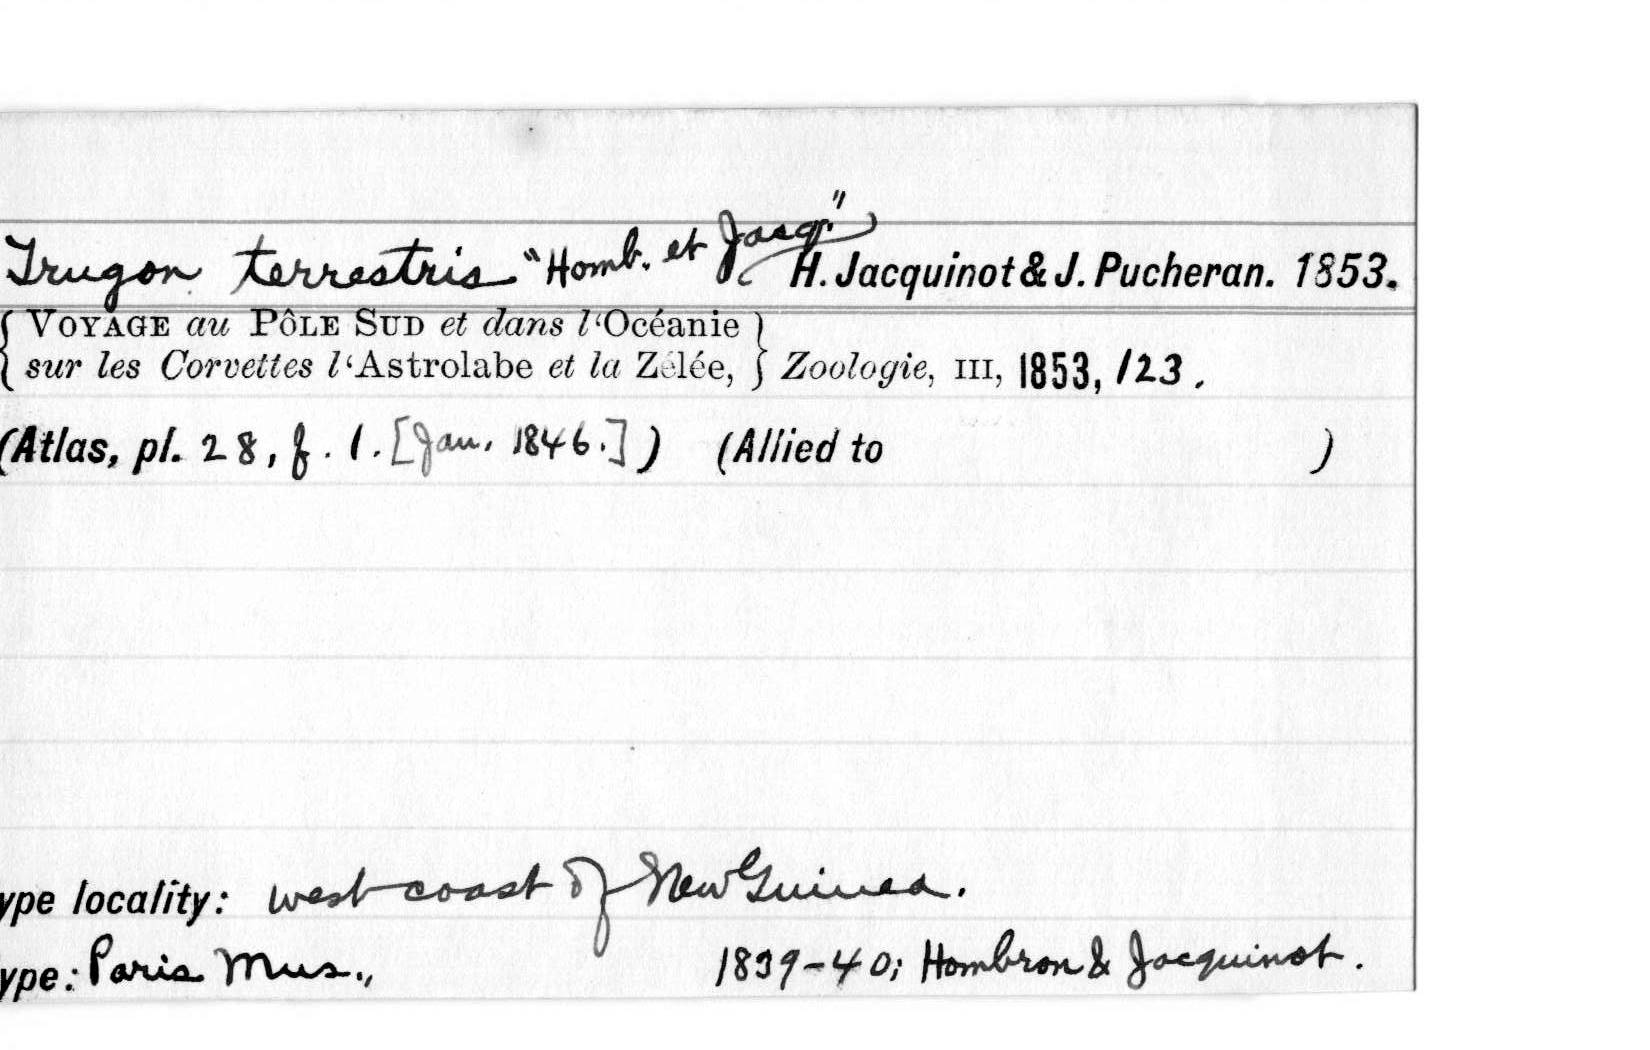 Trugon terrestris "Homb. et Jacq." H. Jacquinot & J. Pucheran. 1853.
{ VOYAGE au PÔLE SUD et dans l'Océanie }
{ sur les Corvettes l'Astrolabe et la Zélée, } Zoologie, III, 1853, 123.
(Atlas, pl. 28, f. 1. [Jan. 1846.]) (Allied to )
ype locality: west coast of New Guinea.
ype: Paris Mus., 1839-40; Hombron & Jacquinot.